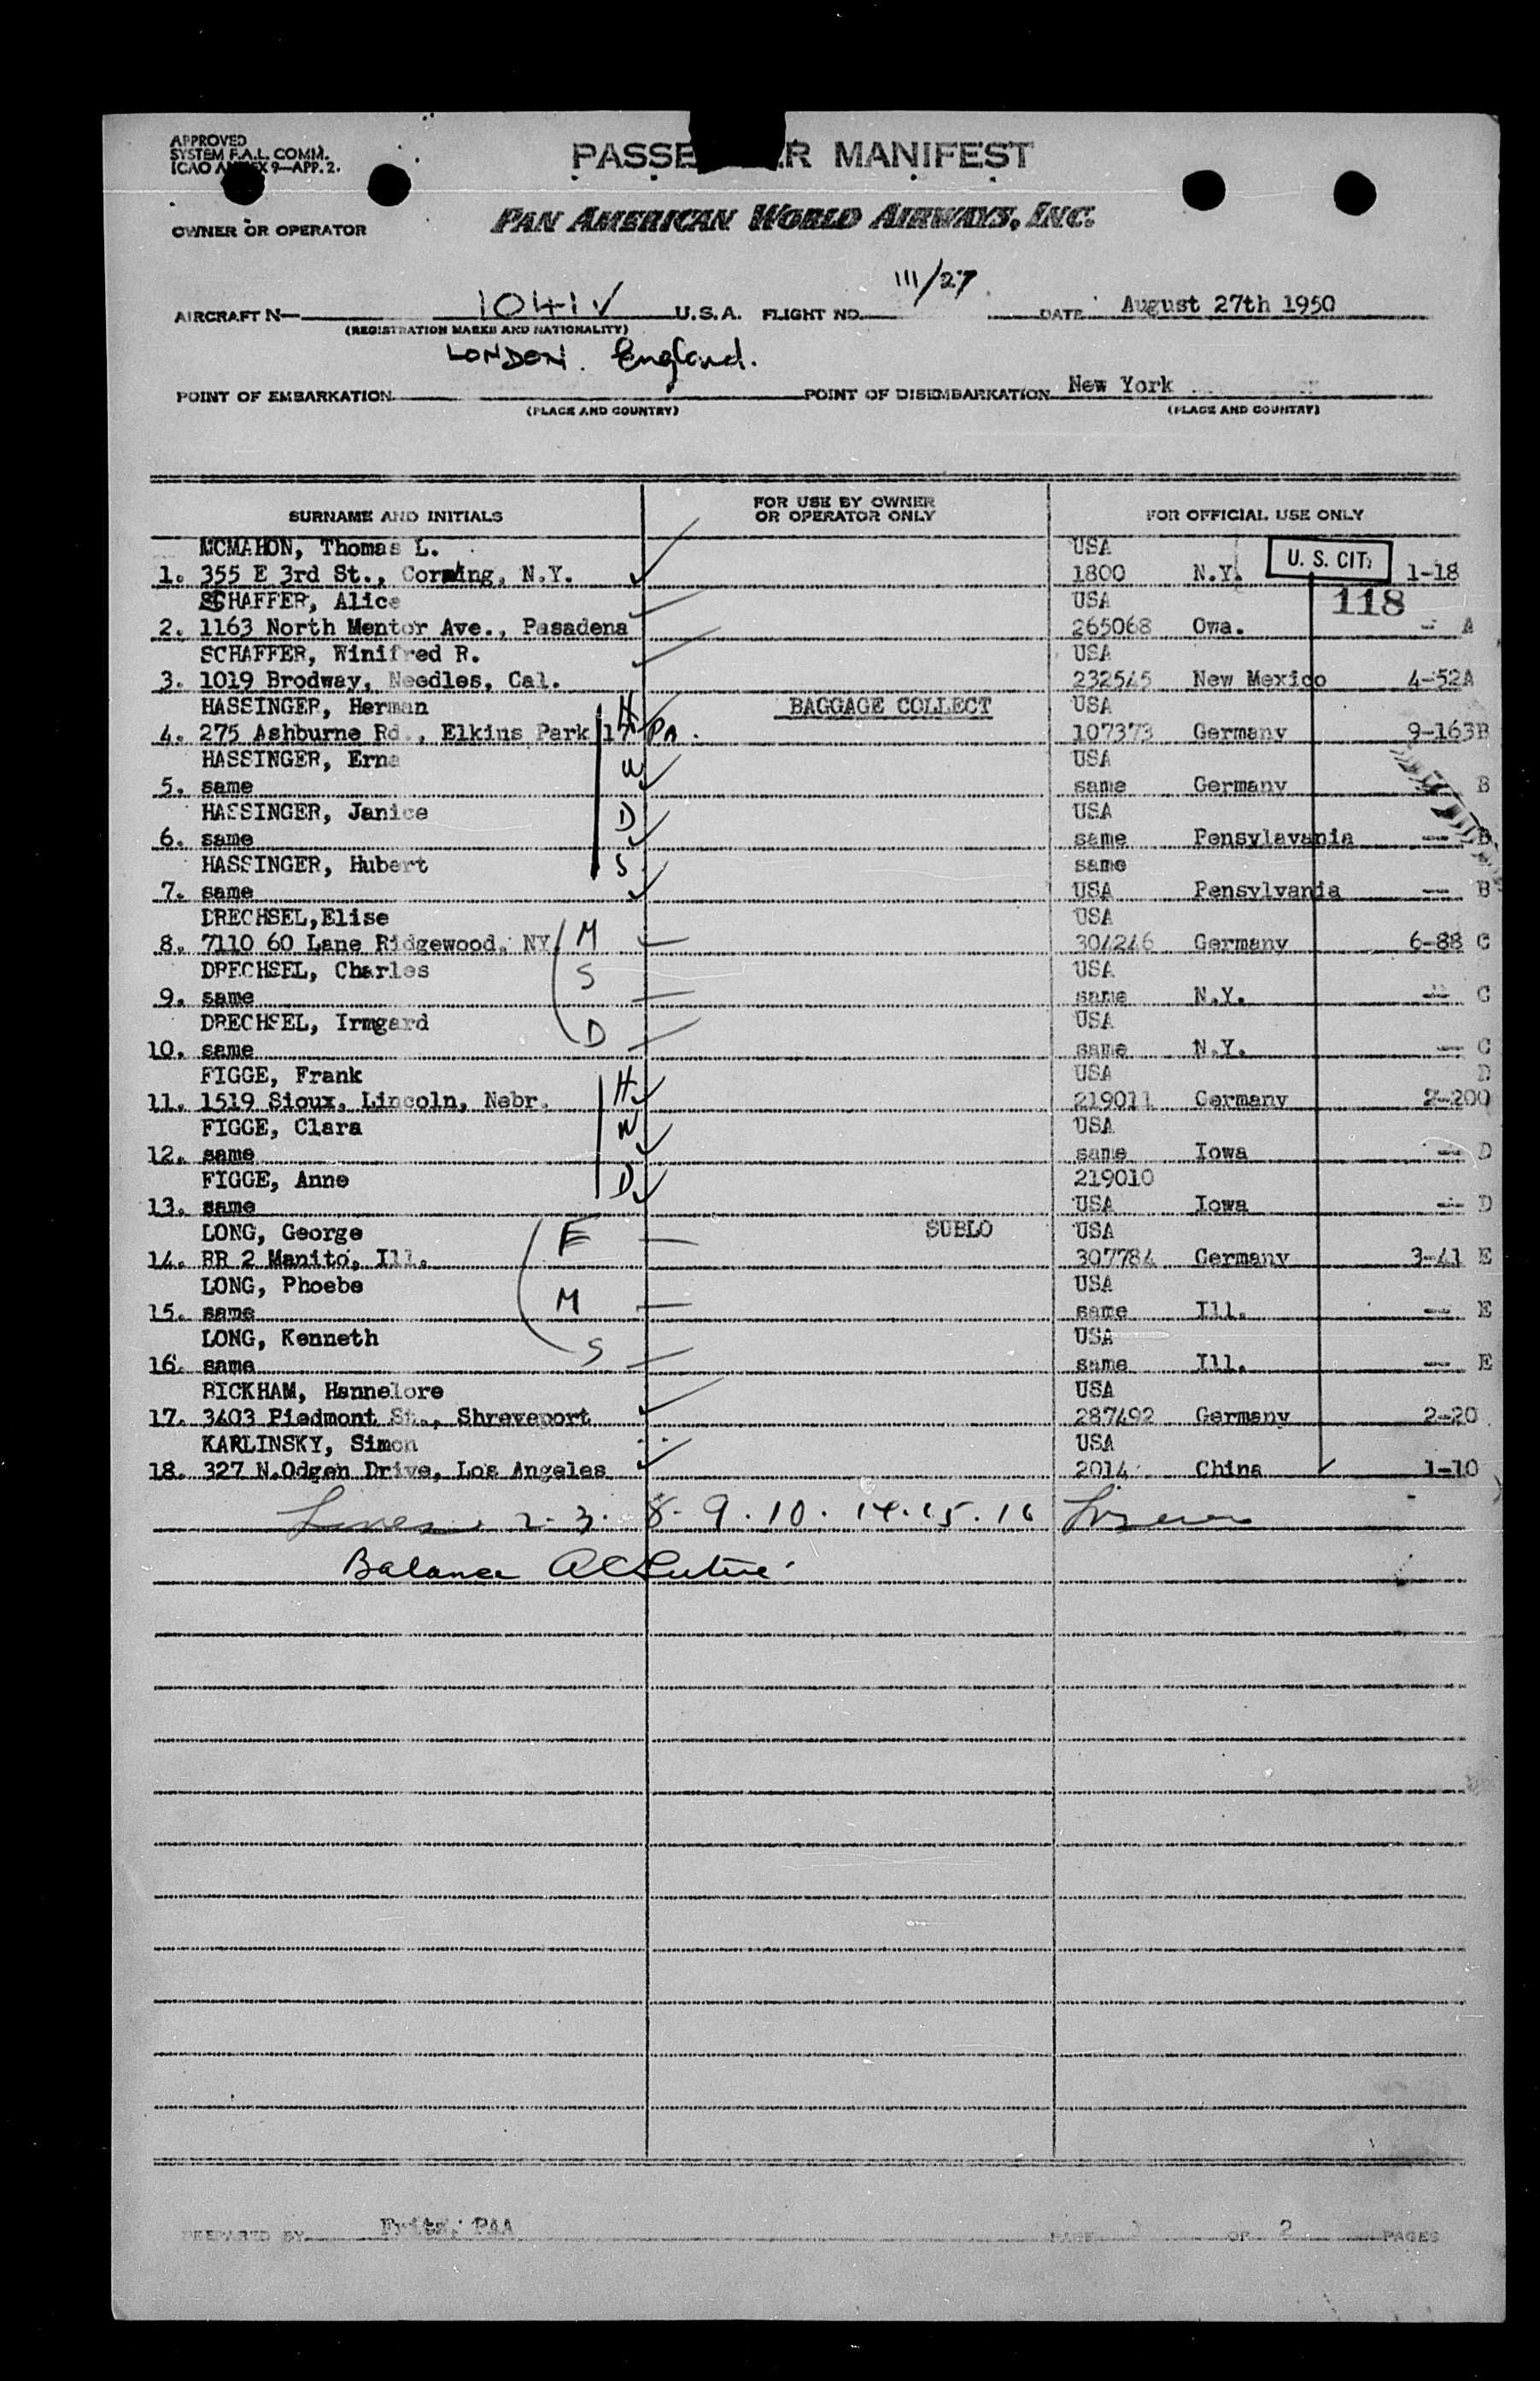 APPROVED
SYSTEM F.A.L. COMM.
ICAO ANNEX 9—APP. 2.
PASSENGER MANIFEST
OWNER OR OPERATOR PAN AMERICAN WORLD AIRWAYS, INC.
111/27
AIRCRAFT N— 1041V U.S.A. FLIGHT NO. DATE August 27th 1950
(REGISTRATION MARKS AND NATIONALITY)
LONDON. England.
POINT OF EMBARKATION POINT OF DISEMBARKATION New York
(PLACE AND COUNTRY) (PLACE AND COUNTRY)
SURNAME AND INITIALS FOR USE BY OWNER OR OPERATOR ONLY FOR OFFICIAL USE ONLY
MCMAHON, Thomas L. USA U. S. CIT.
1. 355 E 3rd St., Corning, N.Y. 1800 N.Y. 1-18
SCHAFFER, Alice USA 118
2. 1163 North Mentor Ave., Pasadena 265068 Owa. - A
SCHAFFER, Winifred R. USA
3. 1019 Brodway, Needles, Cal. 232545 New Mexico 4-52A
HASSINGER, Herman H BAGGAGE COLLECT USA
4. 275 Ashburne Rd., Elkins Park 17 PA. 107373 Germany 9-163B
HASSINGER, Erna W USA
5. same same Germany B
HASSINGER, Janice D USA
6. same same Pensylavania — B
HASSINGER, Hubert S same
7. same USA Pensylvania — B
DRECHSEL,Elise USA
8. 7110 60 Lane Ridgewood, NY. M 304246 Germany 6-88 C
DRECHSEL, Charles S USA
9. same same N.Y. — C
DRECHSEL, Irmgard D USA
10. same same N.Y. — C
FIGGE, Frank H USA D
11. 1519 Sioux, Lincoln, Nebr. 219011 Germany 2-200
FIGGE, Clara W USA
12. same same Iowa — D
FIGGE, Anne D 219010
13. same USA Iowa — D
LONG, George F SUBLO USA
14. RR 2 Manito, Ill. 307784 Germany 3-41 E
LONG, Phoebe M USA
15. same same Ill. — E
LONG, Kenneth S USA
16. same same Ill. — E
BICKHAM, Hannelore USA
17. 3403 Piedmont St., Shreveport 287492 Germany 2-20
KARLINSKY, Simon USA
18. 327 N.Odgen Drive, Los Angeles 2014 China 1-10
Lines. 2. 3. 8. 9. 10. 14. 15. 16
Balance
PREPARED BY Fritz, PAA PAGE 1 OF 2 PAGES